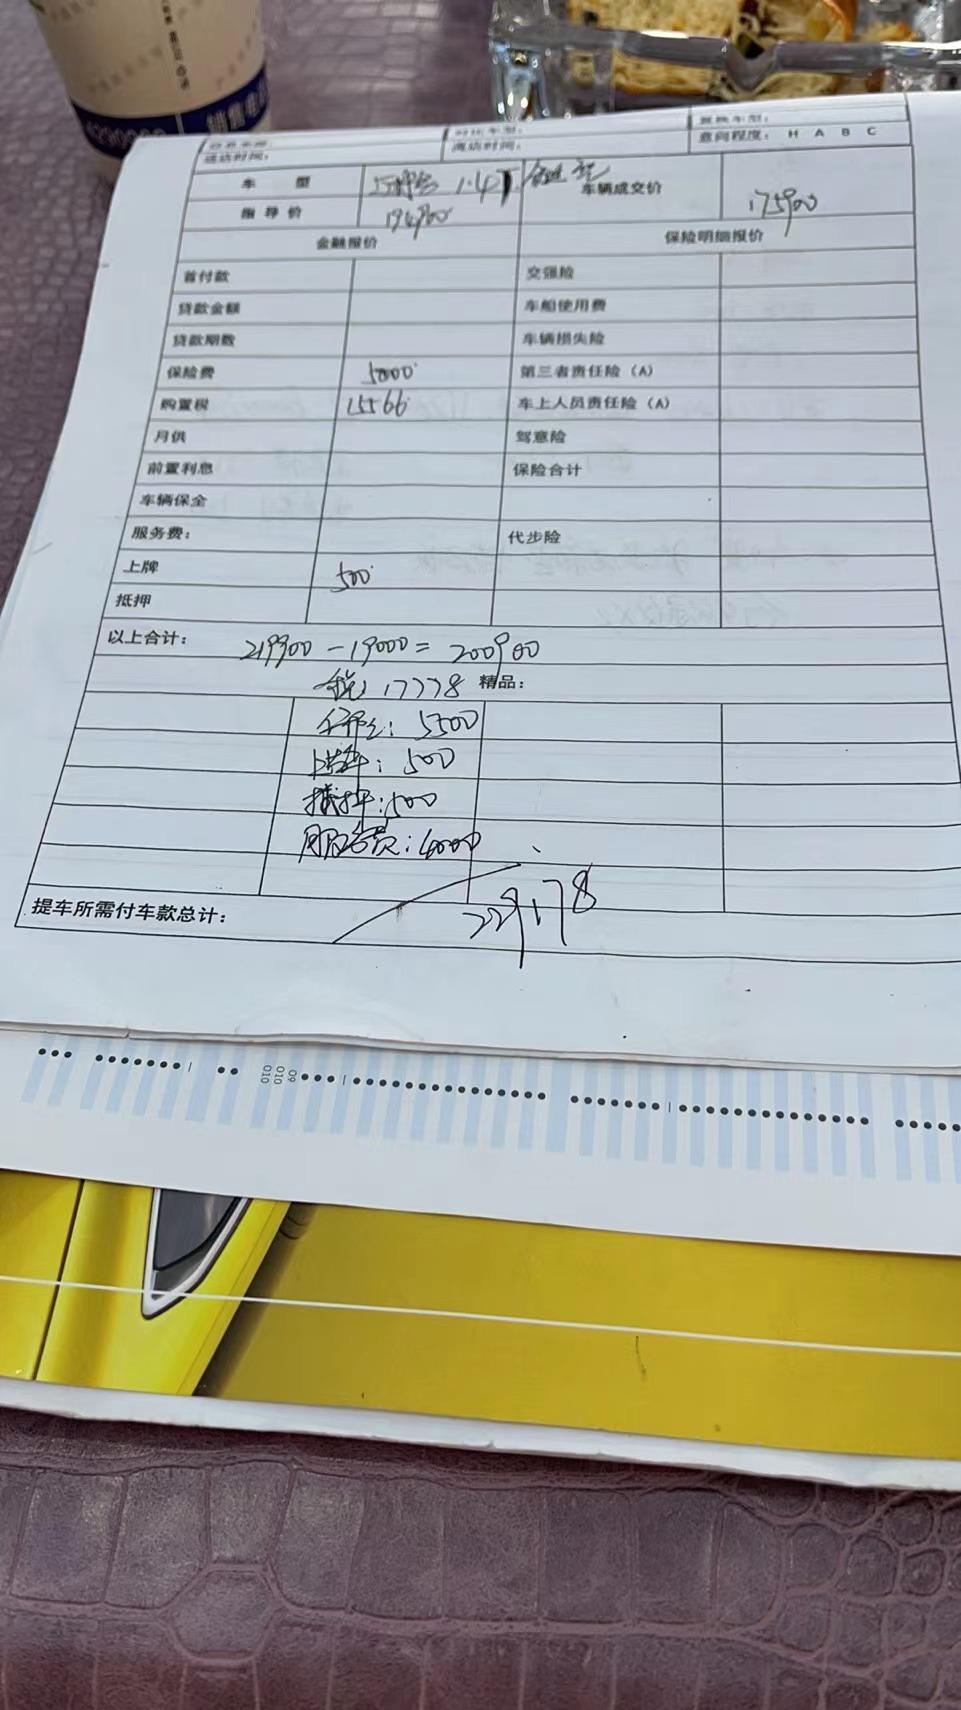 意向程度： H A B C
车 型 1.4T 车辆成交价 175900
指导价 194900
金融报价 保险明细报价
首付款 交强险
贷款金额 车船使用费
贷款期数 车辆损失险
保险费 5000 第三者责任险（A）
购置税 15566 车上人员责任险（A）
月供 驾意险
前置利息 保险合计
车辆保全
服务费： 代步险
上牌 500
抵押
以上合计： 219900-19000=200900
税 17778 精品：
5500
上牌：500
抵押：500
服务费：4000
提车所需付车款总计： 229178